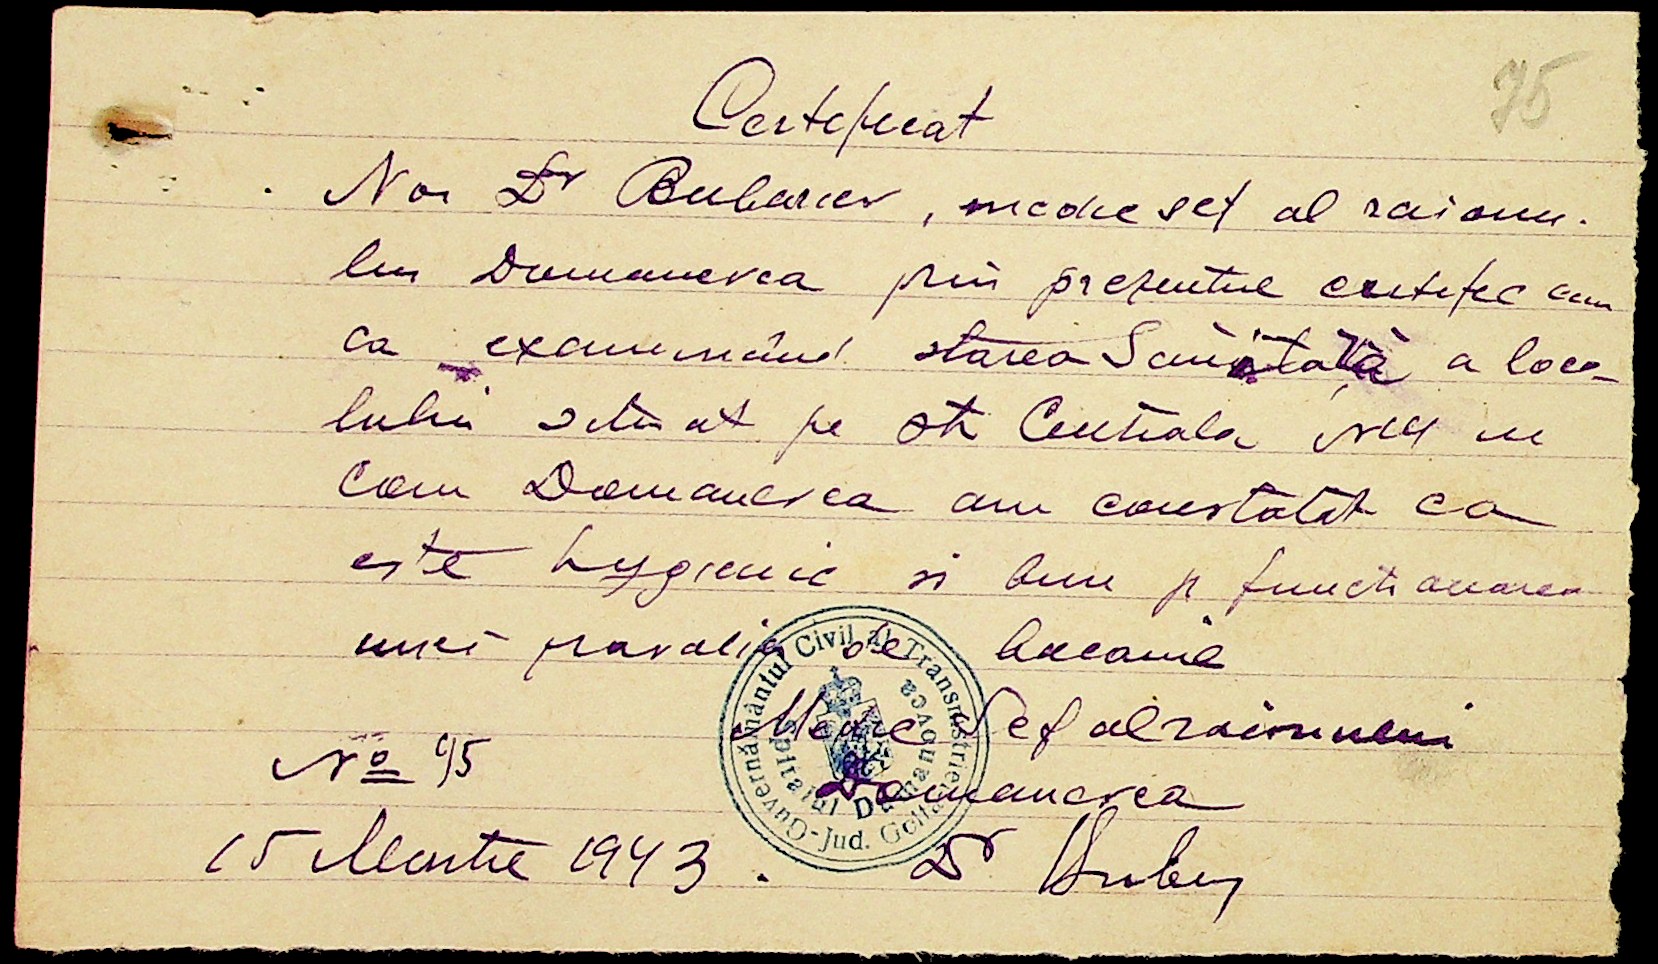 75
Certificat
Noi Dr Bubariev, medic sef al raionu-
lui Domanevca prin prezentul certificam
ca examinând starea Sanitatã a loca-
lului situat pe str Centrala N 4 in
Com Domanevca am constatat ca
este hygienic si bun p functionarea
unei pravalia de bacanie
Medic Sef al raionului
Domanevca
No 95
15 Martie 1943. Dr
Guvernământul Civil al Transnistriei
Jud. Golta
Spitalul Domanovca